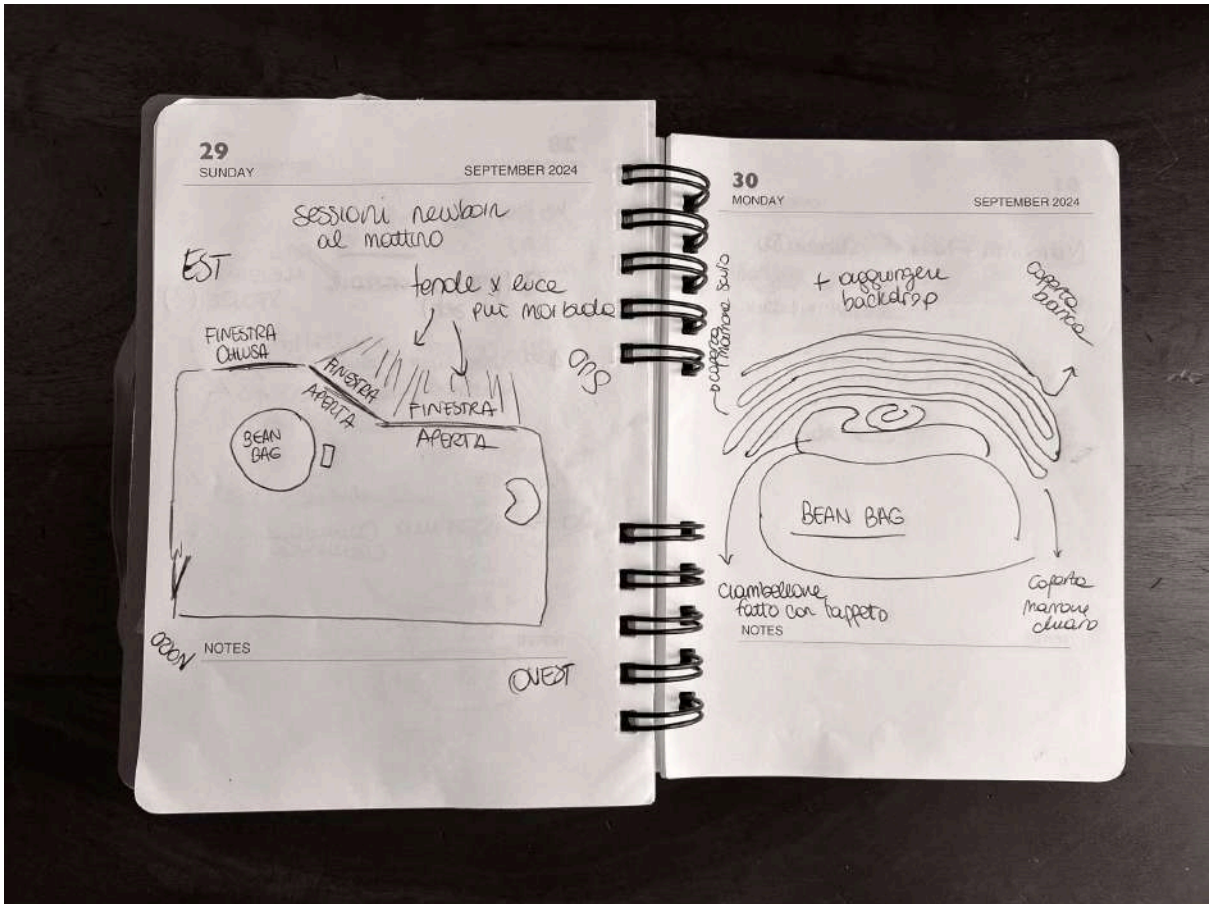 29
SUNDAY
SEPTEMBER 2024
sessioni newborn
al mattino
EST
tende x luce
più morbida
FINESTRA
CHIUSA
FINESTRA
APERTA
FINESTRA
APERTA
SUD
BEAN
BAG
NORD
NOTES
OVEST
30
MONDAY
SEPTEMBER 2024
+ aggiungere
backdrop
coperta
bianca
coperta
marrone scuro
BEAN BAG
ciambellone
fatto con tappeto
Coperta
marrone
chiaro
NOTES